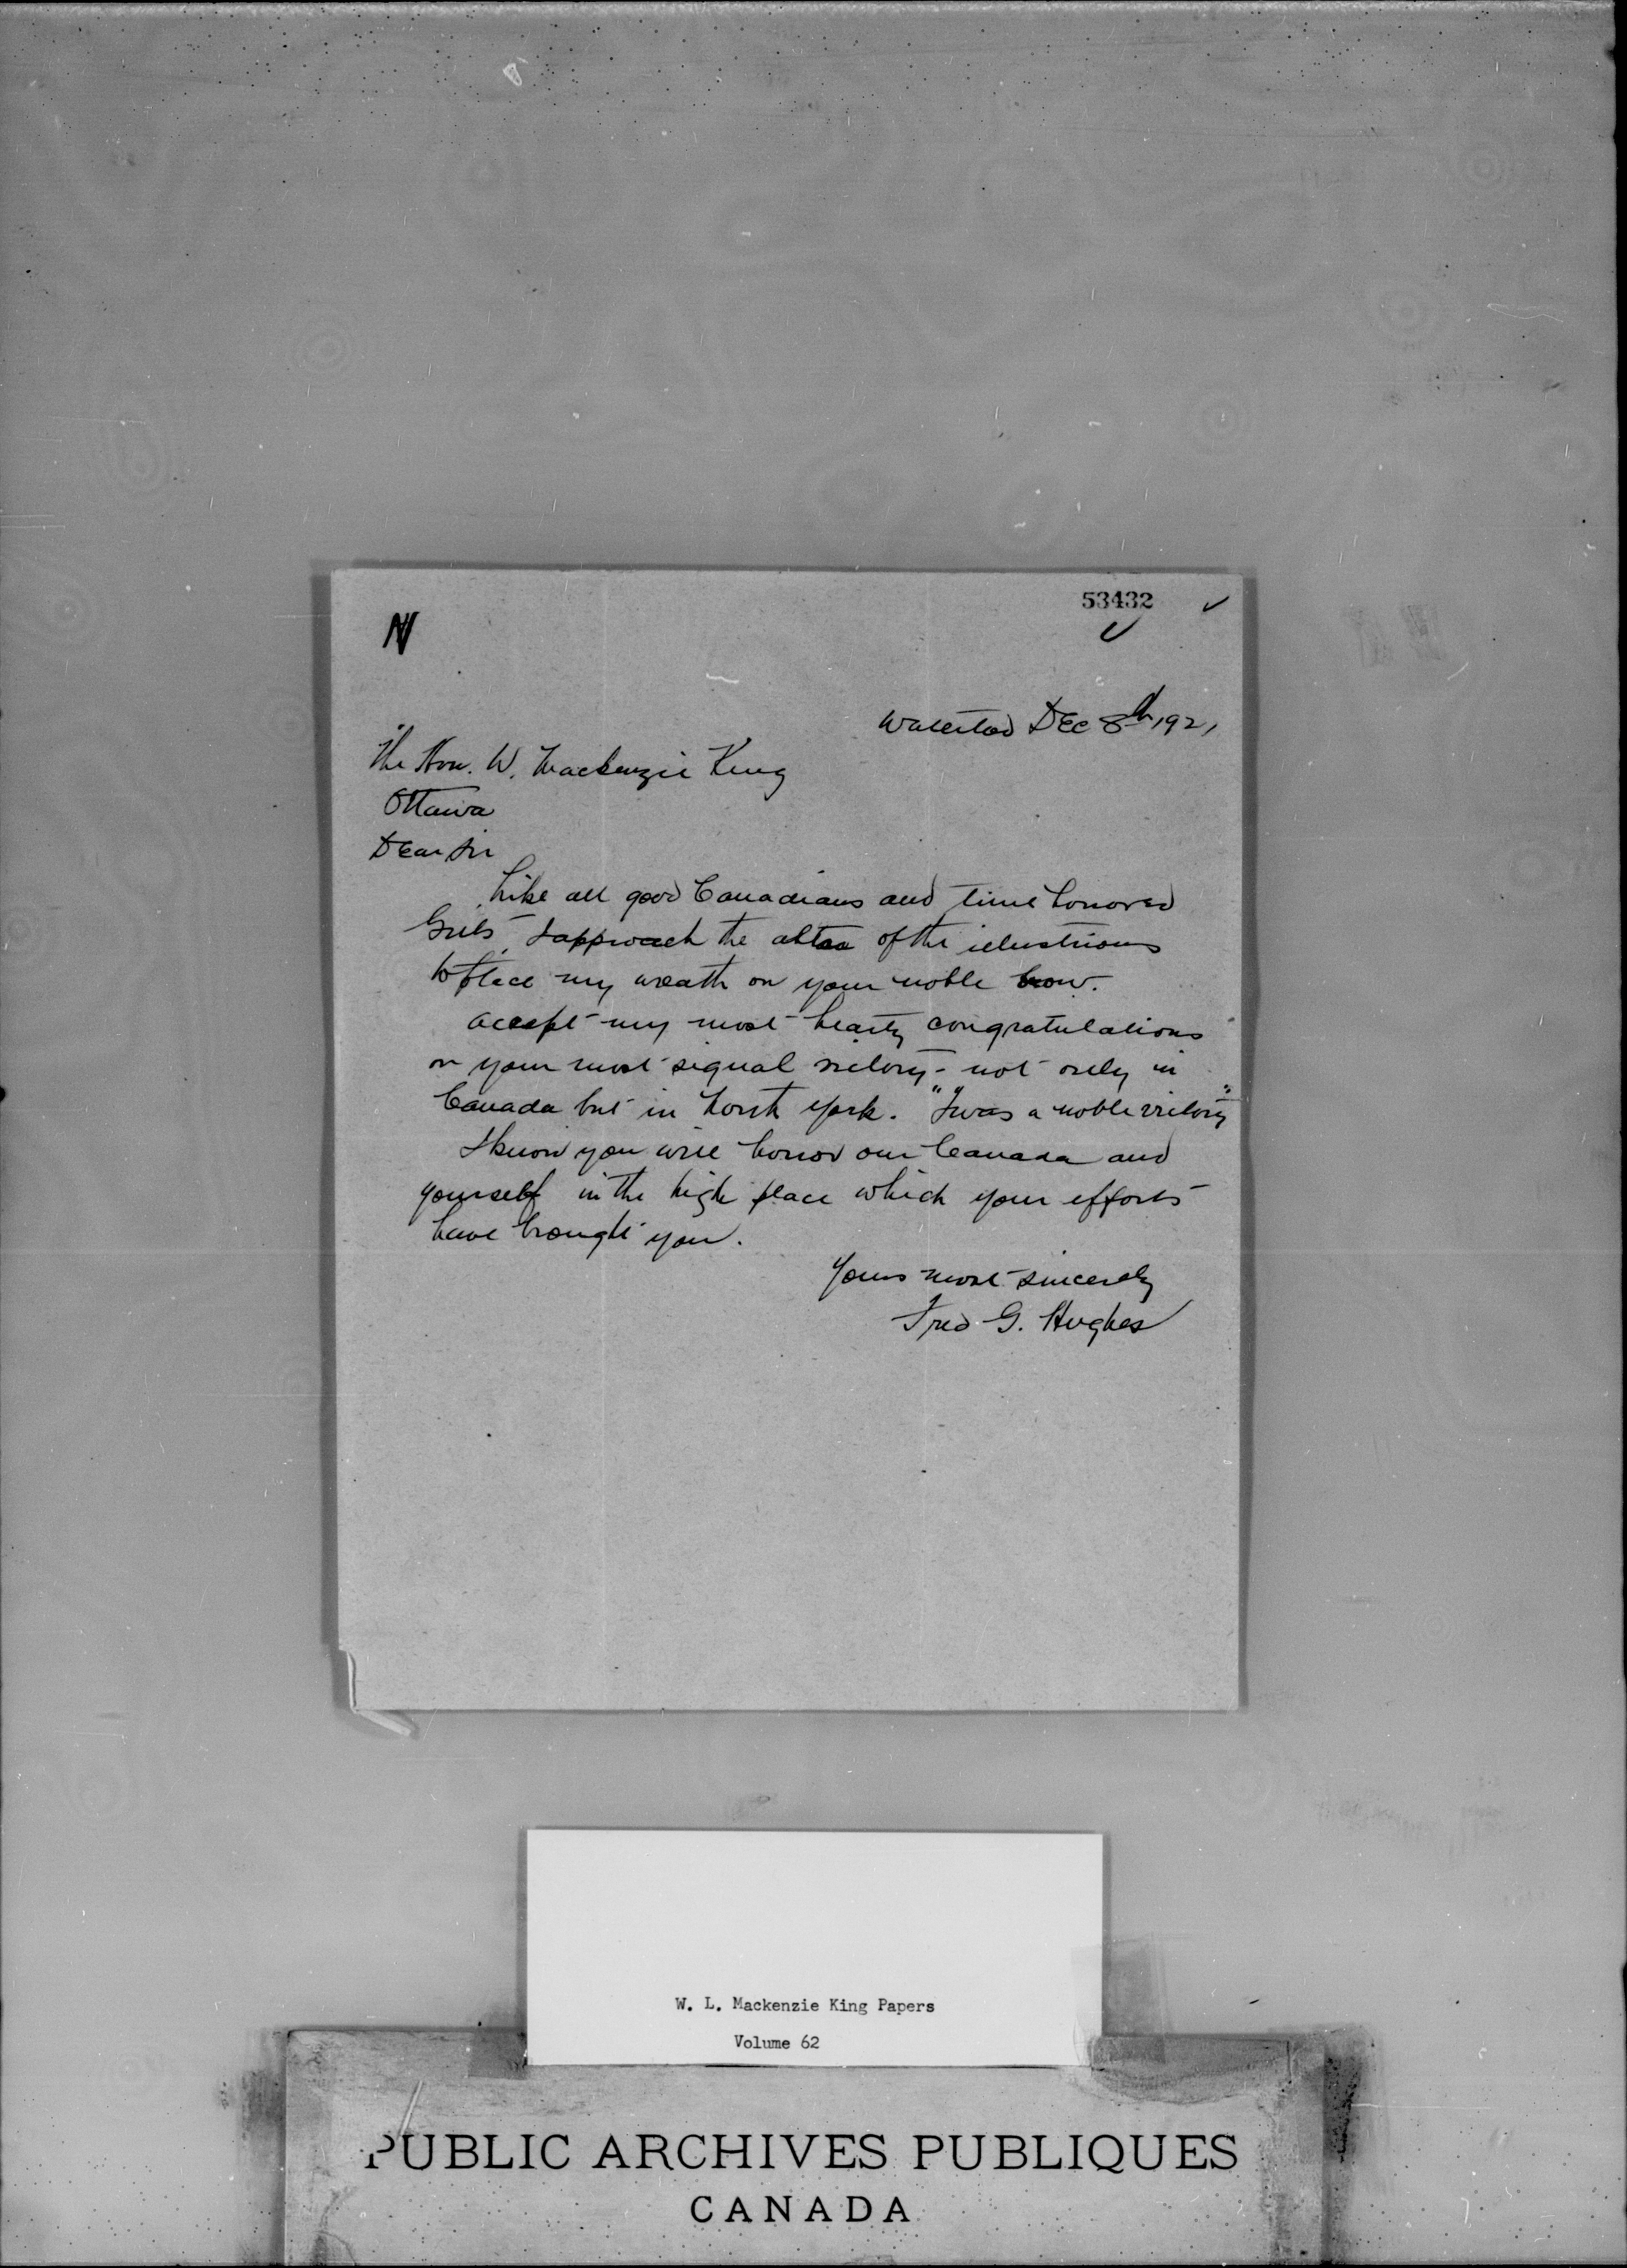 53432
N
Waterloo Dec 8th 1921
The Hon. W. Mackenzie King
Ottawa
Dear Sir
Like all good Canadians and time honored
Grits, I approach the altar of the illustrious
to place my wreath on your noble brow.
Accept my most hearty congratulations
on your most signal victory - not only in
Canada but in North York. "Twas a noble victory"
I know you will honor our Canada and
yourself in the high place which your efforts
have brought you.
Yours most sincerely
Fred G. Hughes
W. L. Mackenzie King Papers
Volume 62
PUBLIC ARCHIVES PUBLIQUES
CANADA